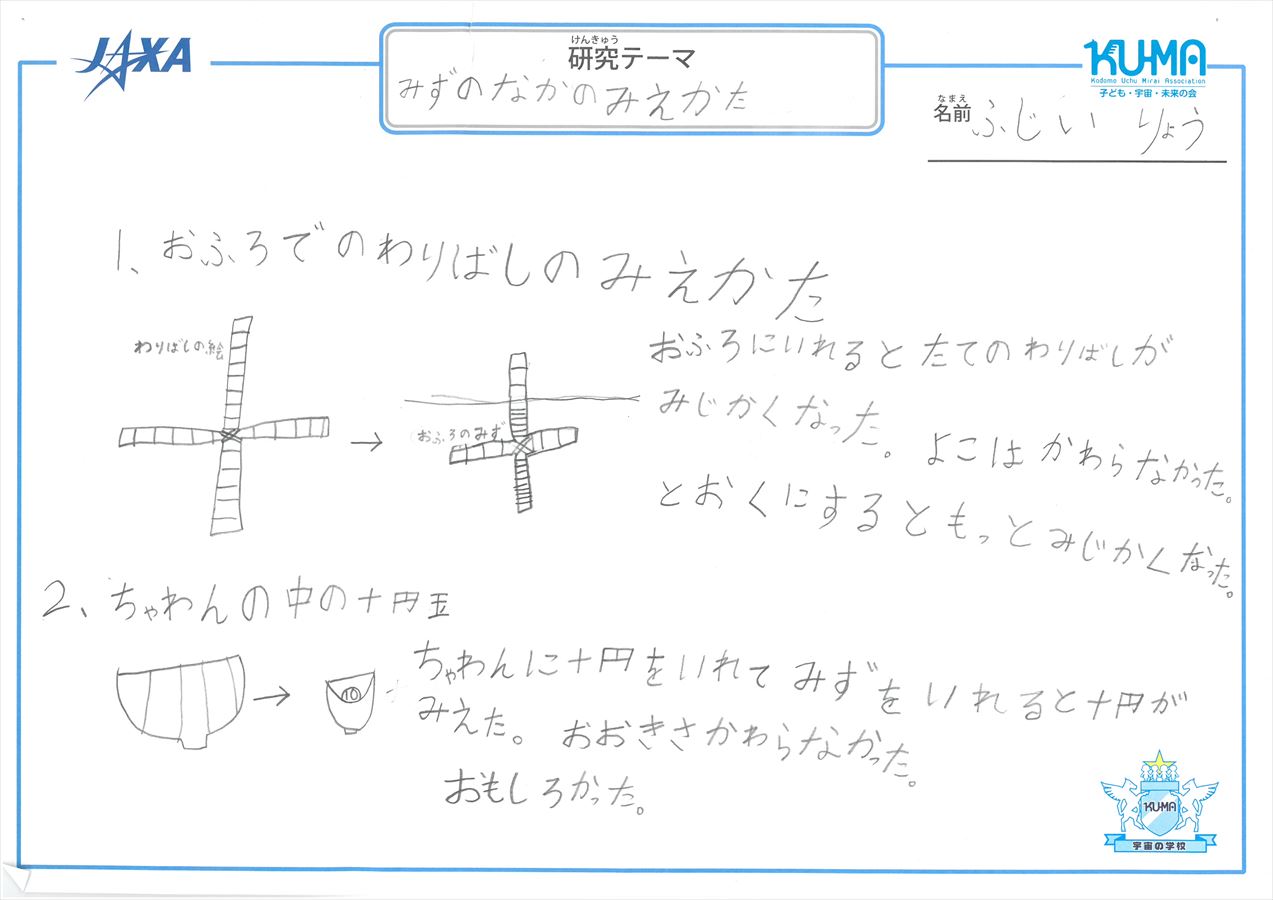 JAXA
けんきゅう
研究テーマ
みずのなかのみえかた
KU-MA
Kodomo Uchu Mirai Association
子ども・宇宙・未来の会
なまえ
名前 ふじい りょう
1、おふろでのわりばしのみえかた
わりばしの絵
おふろのみず
おふろにいれるとたてのわりばしが
みじかくなった。よこはかわらなかった。
とおくにするともっとみじかくなった。
2、ちゃわんの中の十円玉
10
ちゃわんに十円をいれてみずをいれると十円が
みえた。おおきさかわらなかった。
おもしろかった。
KU-MA
宇宙の学校